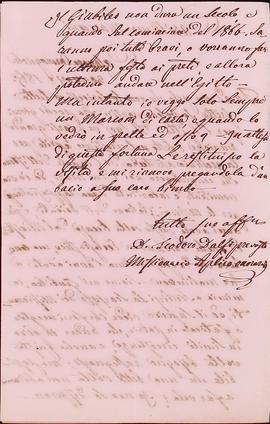 Il Giubileo non dura un secolo e
quando sul cominciar del 1866. Sa
ranno poi tutti bravi, o vorranno far
l'ultima festa ai preti e allora
potremo andare nell'Egitto
Ma intanto io veggo solo sempre
un Marconi di carta e quando lo
vedrò in pelle ed ossa
di questa fortuna Le restituisco la
visita e mi rinnovo pregandola d'un
bacio a suo caro bimbo
tutto suo aff
D. Teodoro Dalfi
Missionario Aplico